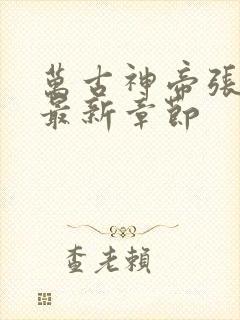 萬古神帝張
最新章節
查老賴